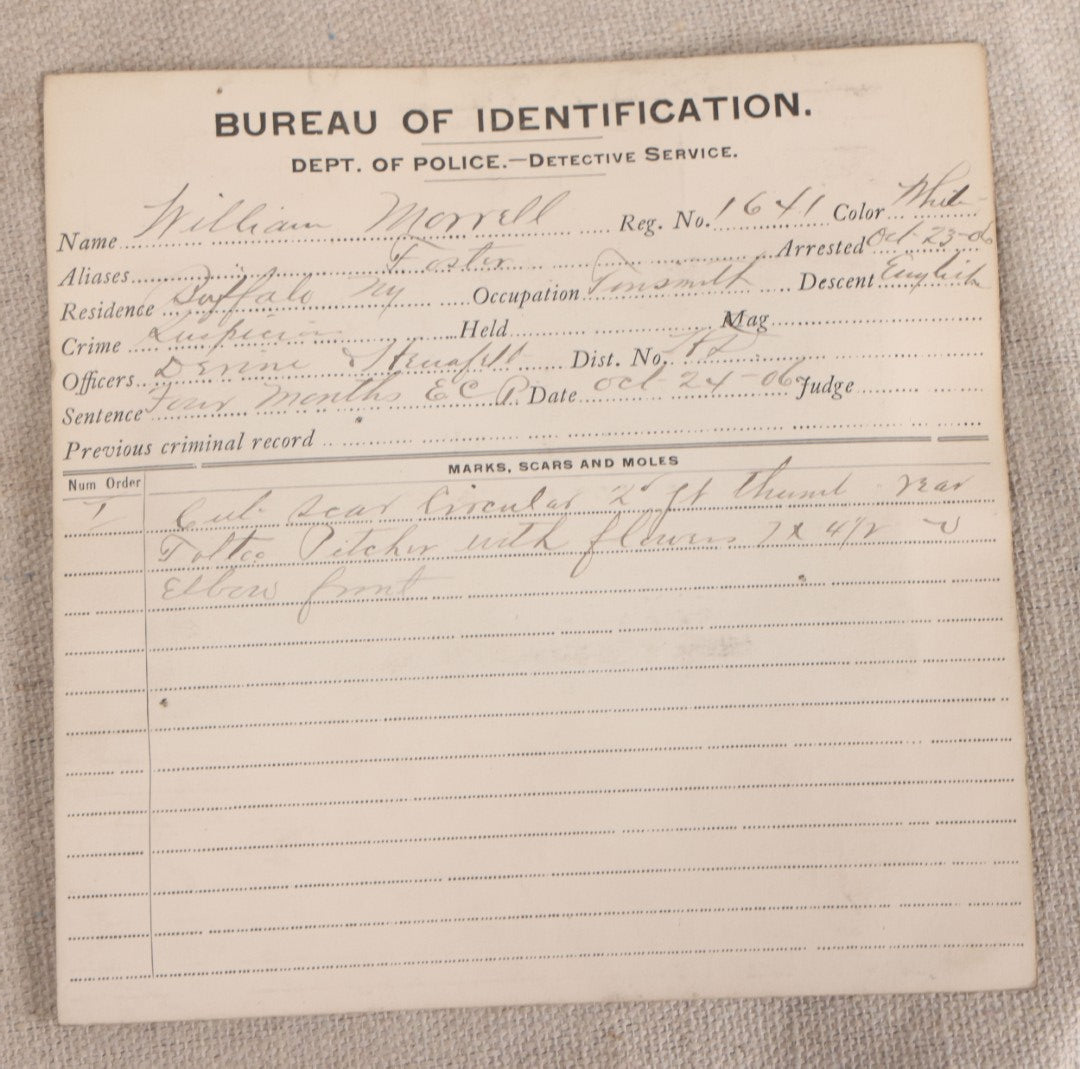 BUREAU OF IDENTIFICATION.
DEPT. OF POLICE.—DETECTIVE SERVICE.
Name William Morrell Reg. No. 1641 Color White
Aliases Foster Arrested Oct-23-06
Residence Buffalo NY Occupation Tinsmith Descent English
Crime Suspicion Held Mag
Officers Devine & Dist. No.
Sentence Four Months E C P. Date Oct-24-06 Judge
Previous criminal record
MARKS, SCARS AND MOLES
Num Order
I Cut scar Circular 2 thumb rear
Pitcher with flowers 7 x 4 1/2
Elbow front